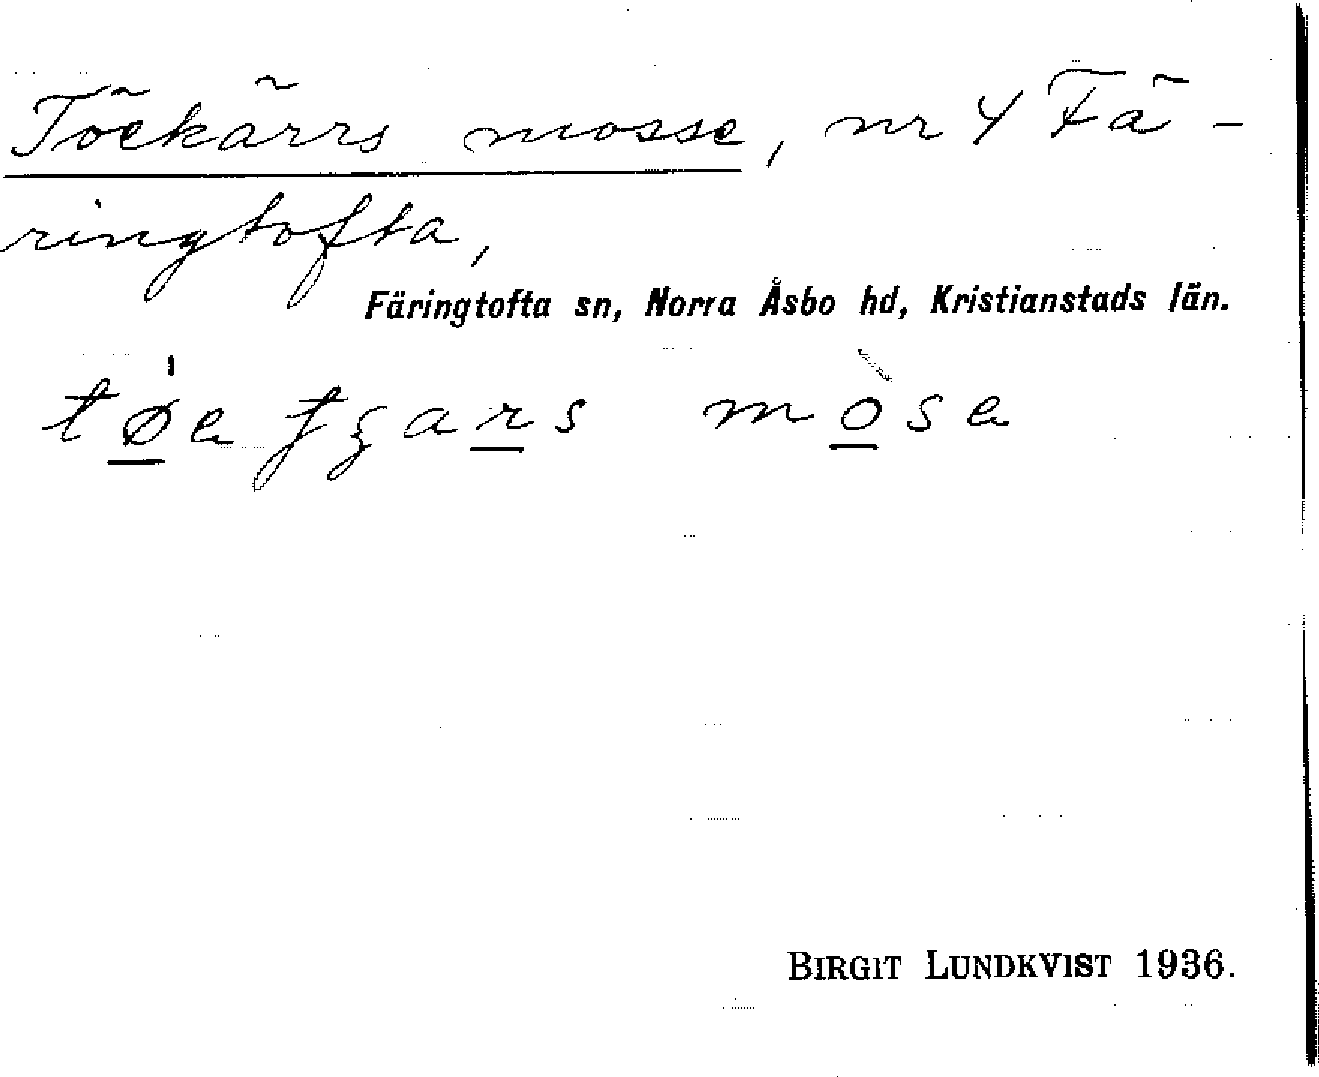 Töekärrs mosse, nr 4 Fä-
ringtofta,
Färingtofta sn, Norra Åsbo hd, Kristianstads län.
mosa
BIRGIT LUNDKVIST 1936.